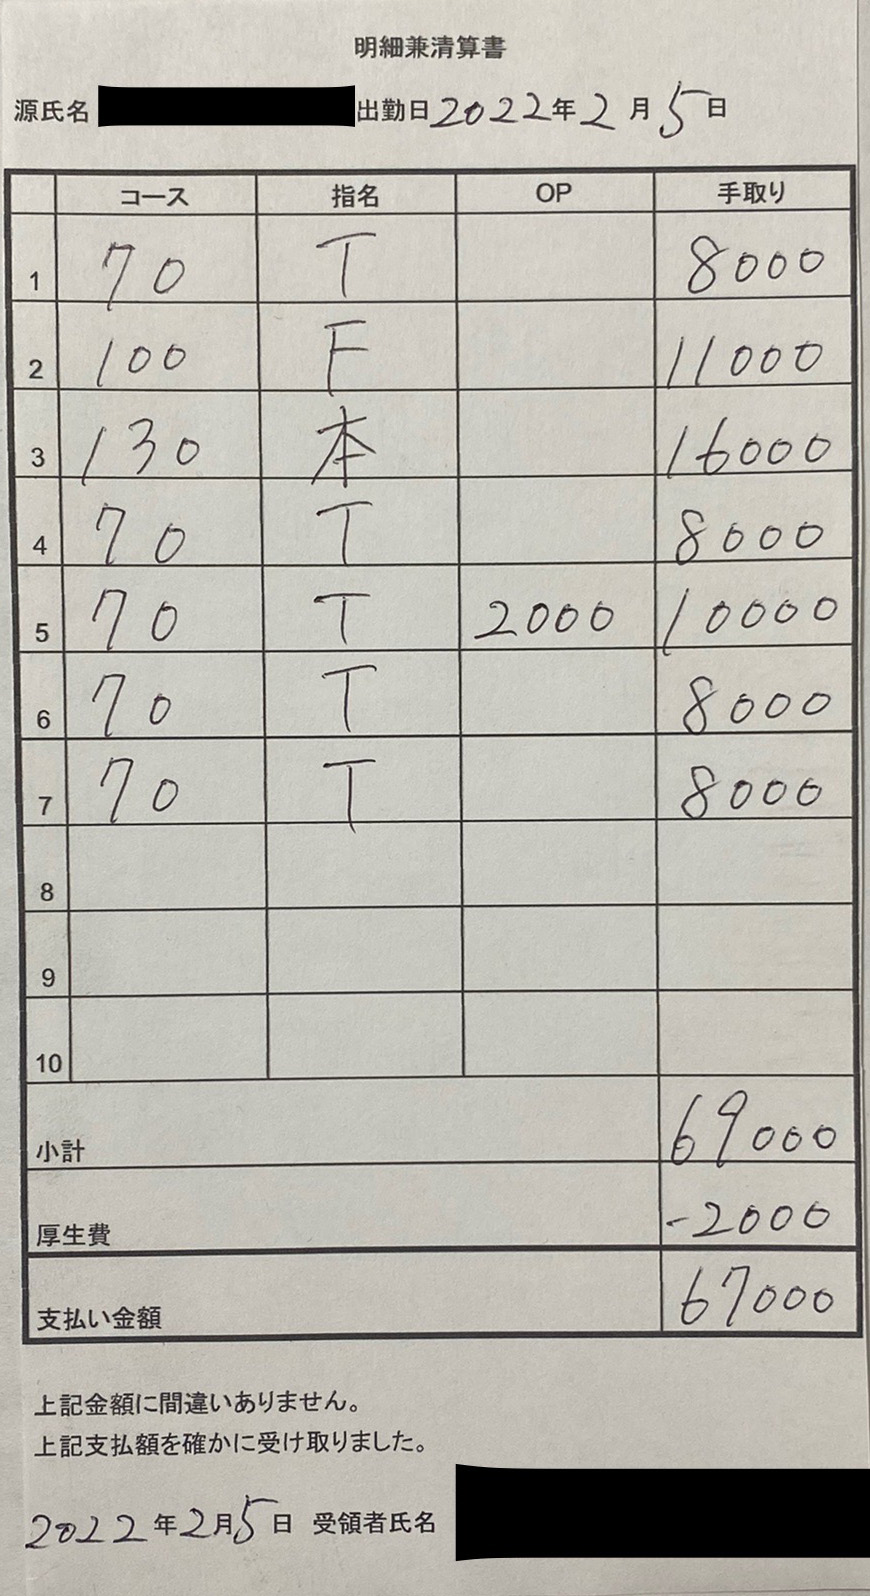 明細兼清算書
源氏名 出勤日 2022年2月5日
コース 指名 OP 手取り
1 70 T 8000
2 100 F 11000
3 130 本 16000
4 70 T 8000
5 70 T 2000 10000
6 70 T 8000
7 70 T 8000
8
9
10
小計 69000
厚生費 -2000
支払い金額 67000
上記金額に間違いありません。
上記支払額を確かに受け取りました。
2022年2月5日 受領者氏名